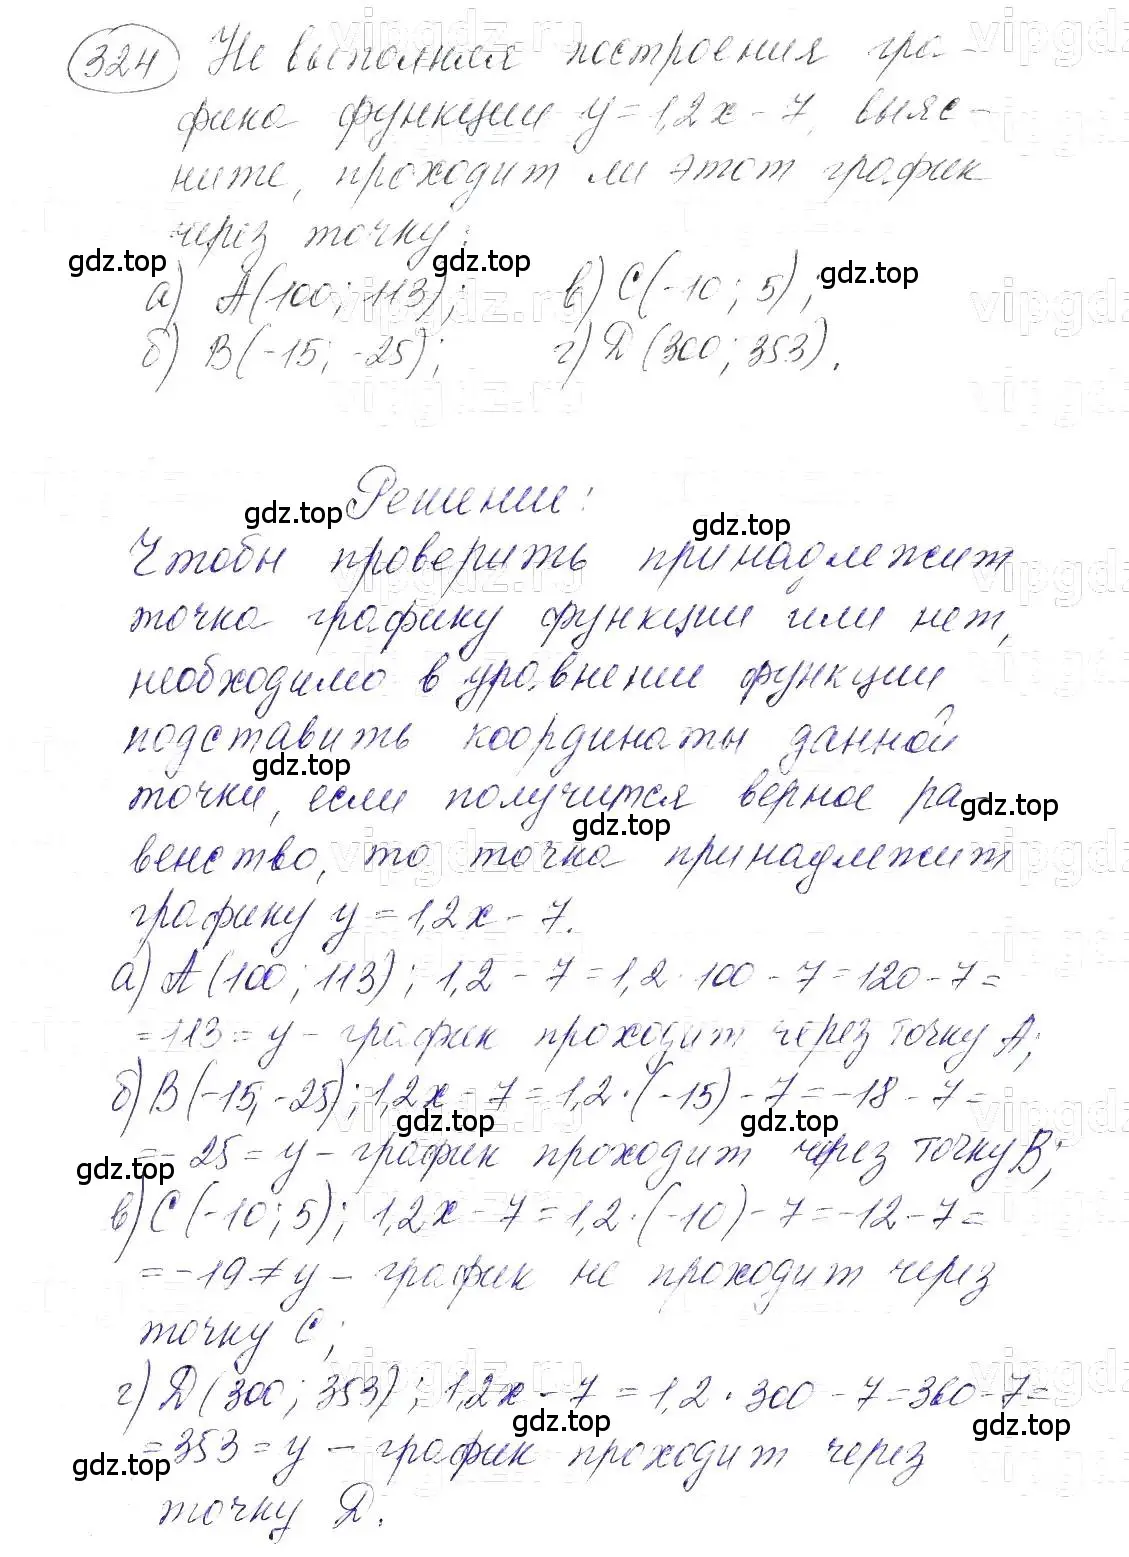 324 Не выполняя построения гра-
фика функции y = 1,2x - 7, выяс-
ните, проходит ли этот график
через точку:
gdz.top gdz.top gdz.top
а) A(100; 113); в) C(-10; 5);
б) B(-15; -25); г) D(300; 353).
Решение:
gdz.top gdz.top
Чтобы проверить принадлежит
точка графику функции или нет,
необходимо в уравнении функции
подставить координаты данной
gdz.top
точки, если получится верное ра
gdz.top gdz.top
венство, то точка принадлежит
графику y = 1,2x - 7.
а) A(100; 113); 1,2 - 7 = 1,2 · 100 - 7 = 120 - 7 =
= 113 = y - график проходит через точку A;
б) B(-15; -25); 1,2x - 7 = 1,2 · (-15) - 7 = -18 - 7 =
gdz.top gdz.top
= -25 = y - график проходит через точку B;
gdz.top
в) C(-10; 5); 1,2x - 7 = 1,2 · (-10) - 7 = -12 - 7 =
= -19 ≠ y - график не проходит через
точку C;
vipgdz.ru
г) D(300; 353); 1,2x - 7 = 1,2 · 300 - 7 = 360 - 7 =
gdz.top gdz.top
= 353 = y - график проходит через
gdz.top
точку D.